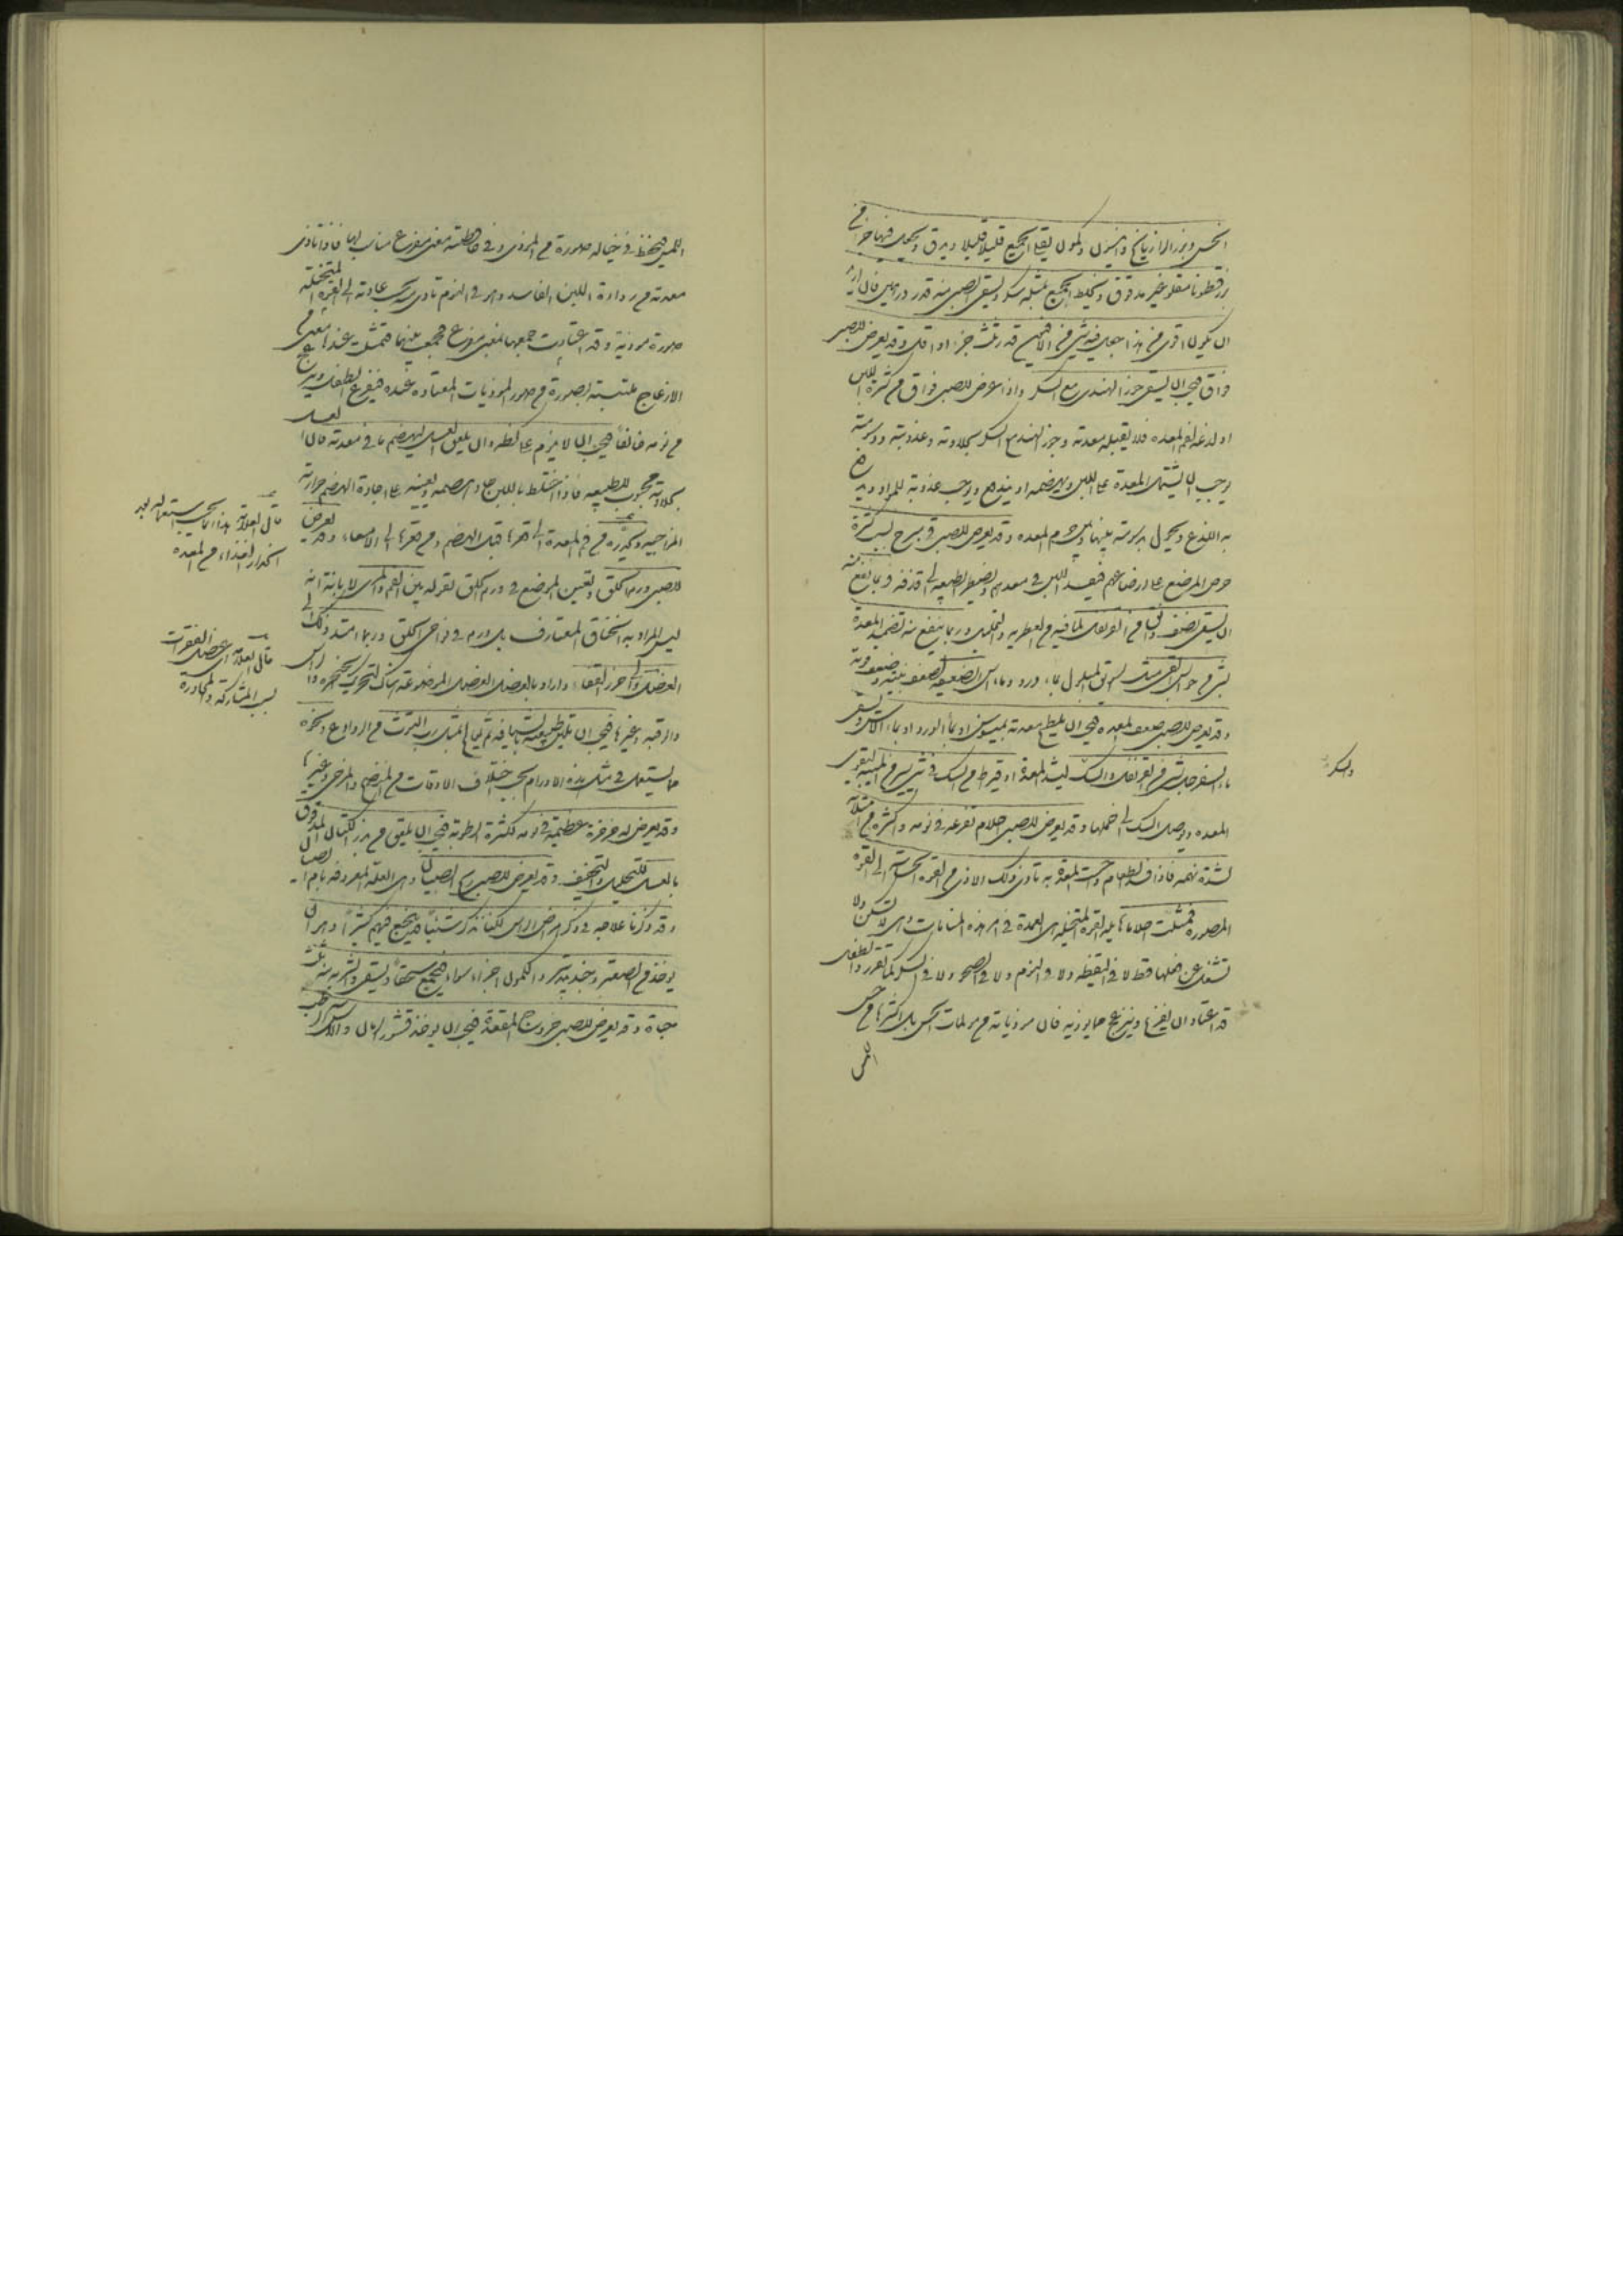 الخس وبزر الرازيانج وانيسون وكمون يقلى الجميع قليلا قليلا ويدق ويجعل فيها جزء من
بزرقطونا مقلو غير مدقوق ويخلط الجميع بمثله سكر ويسقى الصبى منه قدر درهمين فان اريد
ان يكون اقوى من هذا جعل فيه شئ من الافيون قدر ثلث جزء او اقل وقد يعرض للصبى
فواق فيجب ان يسقى جوز الهندى مع السكر واذا عرض للصبى فواق من كثرة اللبن
او لذعه لفم المعدة فلا تقبله معدته وجوز الهند مع السكر بحلاوته وعذوبته ودسومته
يوجب ان يشتمل المعدة على اللبن ويهضمه او يندفع ويوجب عذوبته للمراد
به اللذع ويحول بدسومته بينها وبين جرم المعدة وقد يعرض للصبى قئ مبرح لسبب كثرة
حرص المرضع على ارضاعهم فيفسد اللبن فى معدهم وتضطر الطبيعة الى قذفه فربما نفع منه
ان يسقى نصف دانق من القرنفل لما فيه من العطرية والتحليل وربما ينفع منه تضميد المعدة
بشئ من حوابس القئ مثل السويق المبلول بماء ورد وماء اس الضعيفة لضعف بنيته وضعف قوته
وقد يعرض للصبى ضعف المعدة فيجب ان يلطخ معدته بميسوسن او بماء الورد او بماء الاس ويسقى
ماء السفرجل بشئ من القرنفل والسك ليشد المعدة او قيراط من السك فى شئ يسير من الميبة ليقوى
المعدة ويوصل السك الى خملها وقد يعرض للصبى احلام تفزعه فى نومه واكثره من امتلائه
لشدة نهمه فاذا فسد الطعام واحست المعدة به تأدى ذلك الاذى من القوة الحساسة الى القوة
المصورة فمثلت احلاما هايلة القوة المتخيلة هى العمدة فى امر هذه المنامات وهى لا تسكن ولا
تشغل عن فعلها قط لا فى اليقظة ولا فى النوم ولا فى الصحو ولا فى السكر لما تقرر والطفل
قد اعتاد ان يفزع وينزعج مما يوذيه فان موذياته من مولمات الحس بل اكثرها من حس
اللمس
والسك
اللمس فيحفظ فى خياله صورة من الموذى وفى حافظته معنى مفزع مناسب لها فاذا تاذى
معدته من رداءة اللبن الفاسد وهو فى النوم تادى بحسب عادته الى القوة المتخيلة
صورة موذية وقد اعتادت جمعها لمعنى مفزع فجمعت بينهما فتمثلت عندها معنى من
الازعاج ملتبسة بصورة من صور الموذيات المعتادة عنده فيفزع الطفل وينزعج
من نومه خائفا فيجب ان لا ينوم على كظة وان يلعق العسل ليهضم ما فى معدته فان العسل
بحلاوته محبوب للطبيعة فاذا اختلط باللبن جاد هضمه ويعينه على اجادة الهضم حرارته
المزاجية ويحدره من فم المعدة الى قعرها قبل الهضم ومن قعرها الى الامعاء وقد يعرض
للصبى ورم الحلق وتعيين الموضع فى ورم الحلق لقوله بين الفم والمرى لابانة انه
ليس المراد به الخناق المتعارف بل ورم فى نواحى الحلق وربما امتد ذلك الى
العضل والى خرز القفا واراد بالعضل العضل الموضوعة هناك لتحريك الحنجرة والراس
والرقبة وغيرها فيجب ان تلين طبيعته بشيافة ثم يعالج بمثل رب التوت من الروادع ونحوه
مما يستعمل فى مثل هذه الاورام بحسب اختلاف الاوقات من المنضج والمرخى وغيرها
وقد يعرض له خرخرة عظيمة فى نومه لكثرة الرطوبة فيجب ان يلعق من بزر الكتان المدقوق
بالعسل للتحليل والتجفيف وقد يعرض للصبى ريح الصبيان وهى العلة المعروفة بام الصبيان
وقد ذكرنا علاجه فى ذكر امراض الراس لكنا نذكر شيئا قد ينجع فيهم كثيرا وهو ان
يوخذ من الصعتر وجندبيدستر والكمون اجزاء سواء فيجمع سحقا ويسقى والشربة منه ثلث
حبات وقد يعرض للصبى خروج المقعدة فيجب ان يوخذ قشور الرمان والاس الرطب
قال العلامة هذا انما يجب استعماله بعد
انحدار الغذاء من المعدة
قال العلامة اى عضل الفقرات
لسبب المشاركة والمجاورة